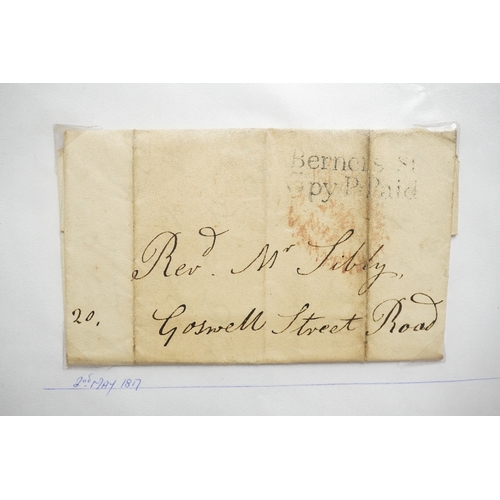 Berners St
2py P. Paid
Revd. Mr Sibly,
20, Goswell Street Road
2nd MAY 1817